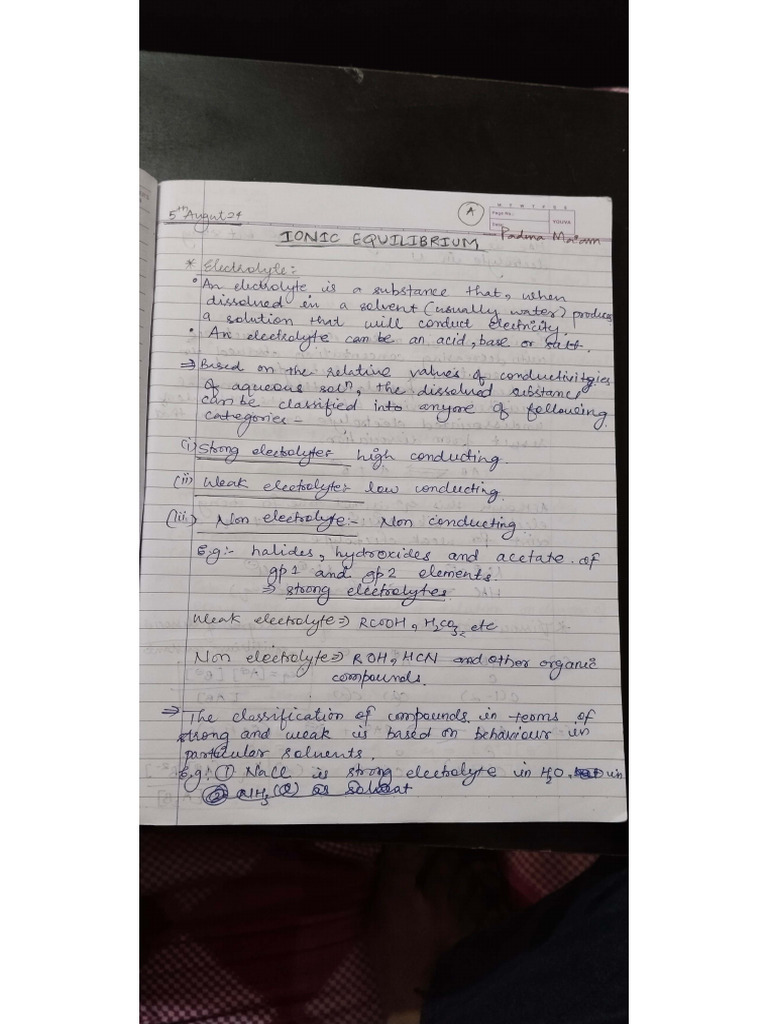 5th August 24
A
M T W T F S S
Page No.:
YOUVA
Date:
Padma Ma'am
IONIC EQUILIBRIUM
* Electrolyte:-
• An electrolyte is a substance that, when
dissolved in a solvent (usually water) produces
a solution that will conduct electricity.
• An electrolyte can be an acid, base or salt.
⇒ Based on the relative values of conductivitgies
of aqueous solⁿ, the dissolved substance
can be classified into anyone of following
categories -
(i) Strong electrolyte:- high conducting.
(ii) Weak electrolyte:- low conducting.
(iii) Non electrolyte:- Non conducting
E.g:- halides, hydroxides and acetate of
gp1 and gp2 elements.
⇒ strong electrolytes.
Weak electrolyte ⇒ RCOOH, H₂CO₃, etc
Non electrolyte ⇒ ROH, HCN and other organic
compounds.
⇒ The classification of compounds in terms of
strong and weak is based on behaviour in
particular solvents.
E.g:- ① NaCl is strong electrolyte in H₂O, in
NH₃(l) as solvent